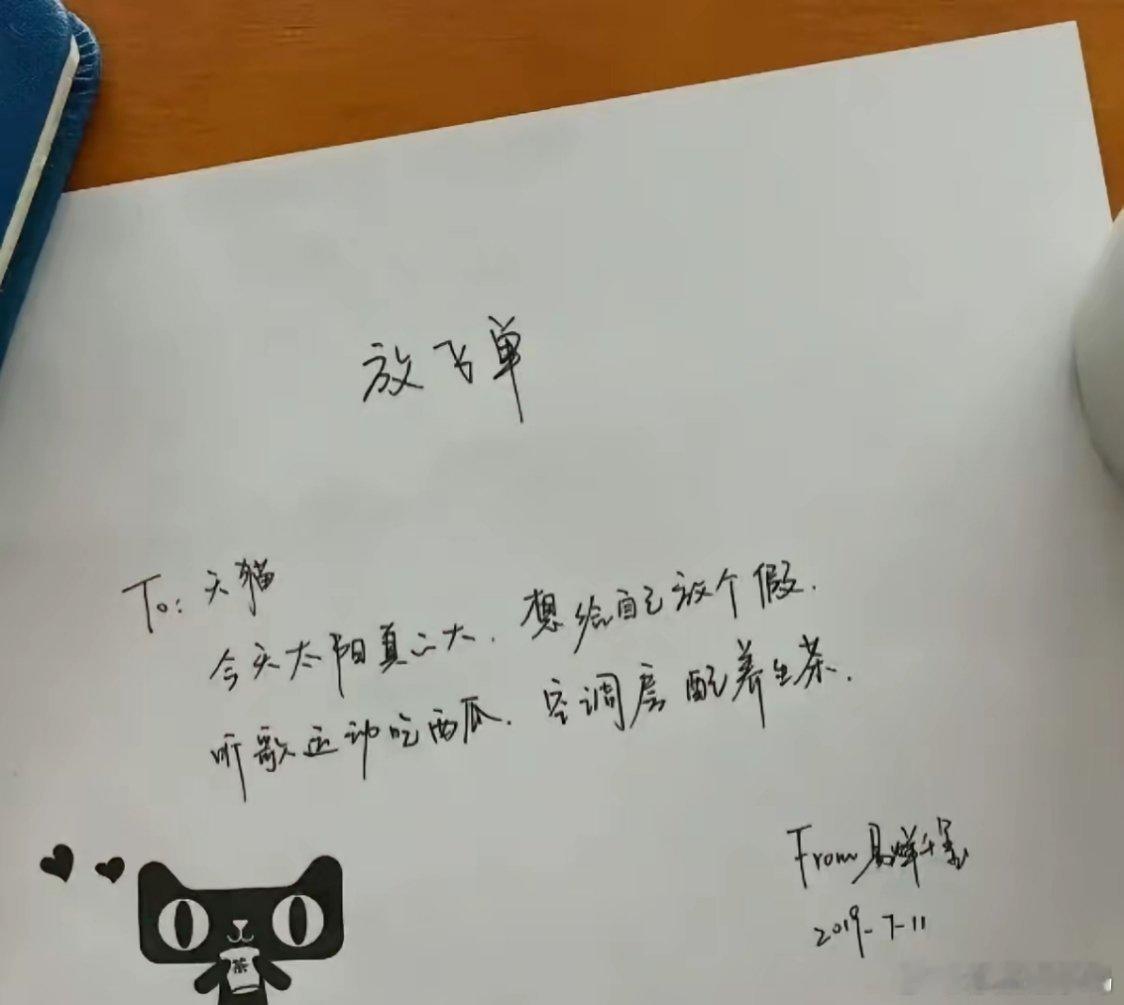 放飞单
To: 天猫
今天太阳真二大. 想给自己放个假.
听歌运动吃西瓜. 空调房配养生茶.
From 易烊千玺
2019-7-11
茶